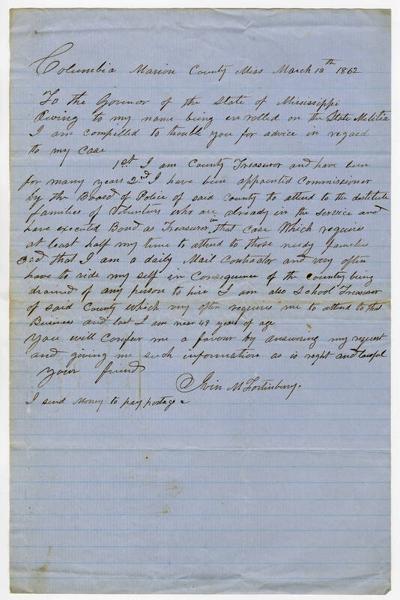 Columbia Marion County Miss March 13th 1862
To the Govnor of the State of Mississippi
Owing to my name being enrolled on the State Militia
I am compelled to trouble you for advice in regard
to my case
1st I am County Treasuror and have been
for many years 2nd I have been appointed Commissioner
by the Board of Police of said County to attend to the destitute
families of Volunteers who are already in the service and
have executed Bond as Treasuror in that case Which requires
at least half my time to attend to those needy families
3rd that I am a daily Mail Contractor and very often
have to ride my self in Consequence of the country being
drained of any person to hire I am also School Treasuror
of said County which very often requires me to attend to that
Business and last I am near 49 years of age
You will Confer me a favour by answering my request
and giving me such information as is right and lawful
Your friend
M Fortinberry
I send money to pay postage